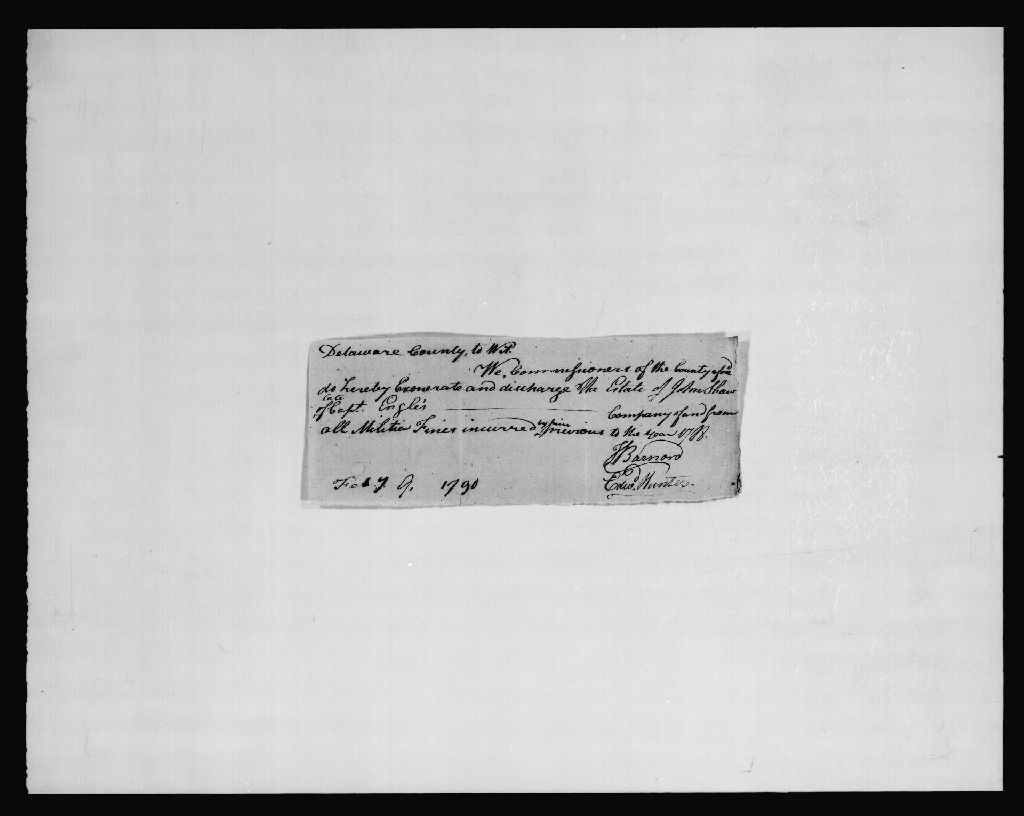 Delaware County, to Wit.
We, Commissioners of the County afsd
do hereby Exonerate and discharge the Estate of John Shaw
late
of Capt. Engles Company of and from
all Militia Fines incurred by him previous to the Year 1788.
J Barnard
Feby. 9. 1790 Edwd. Hunter